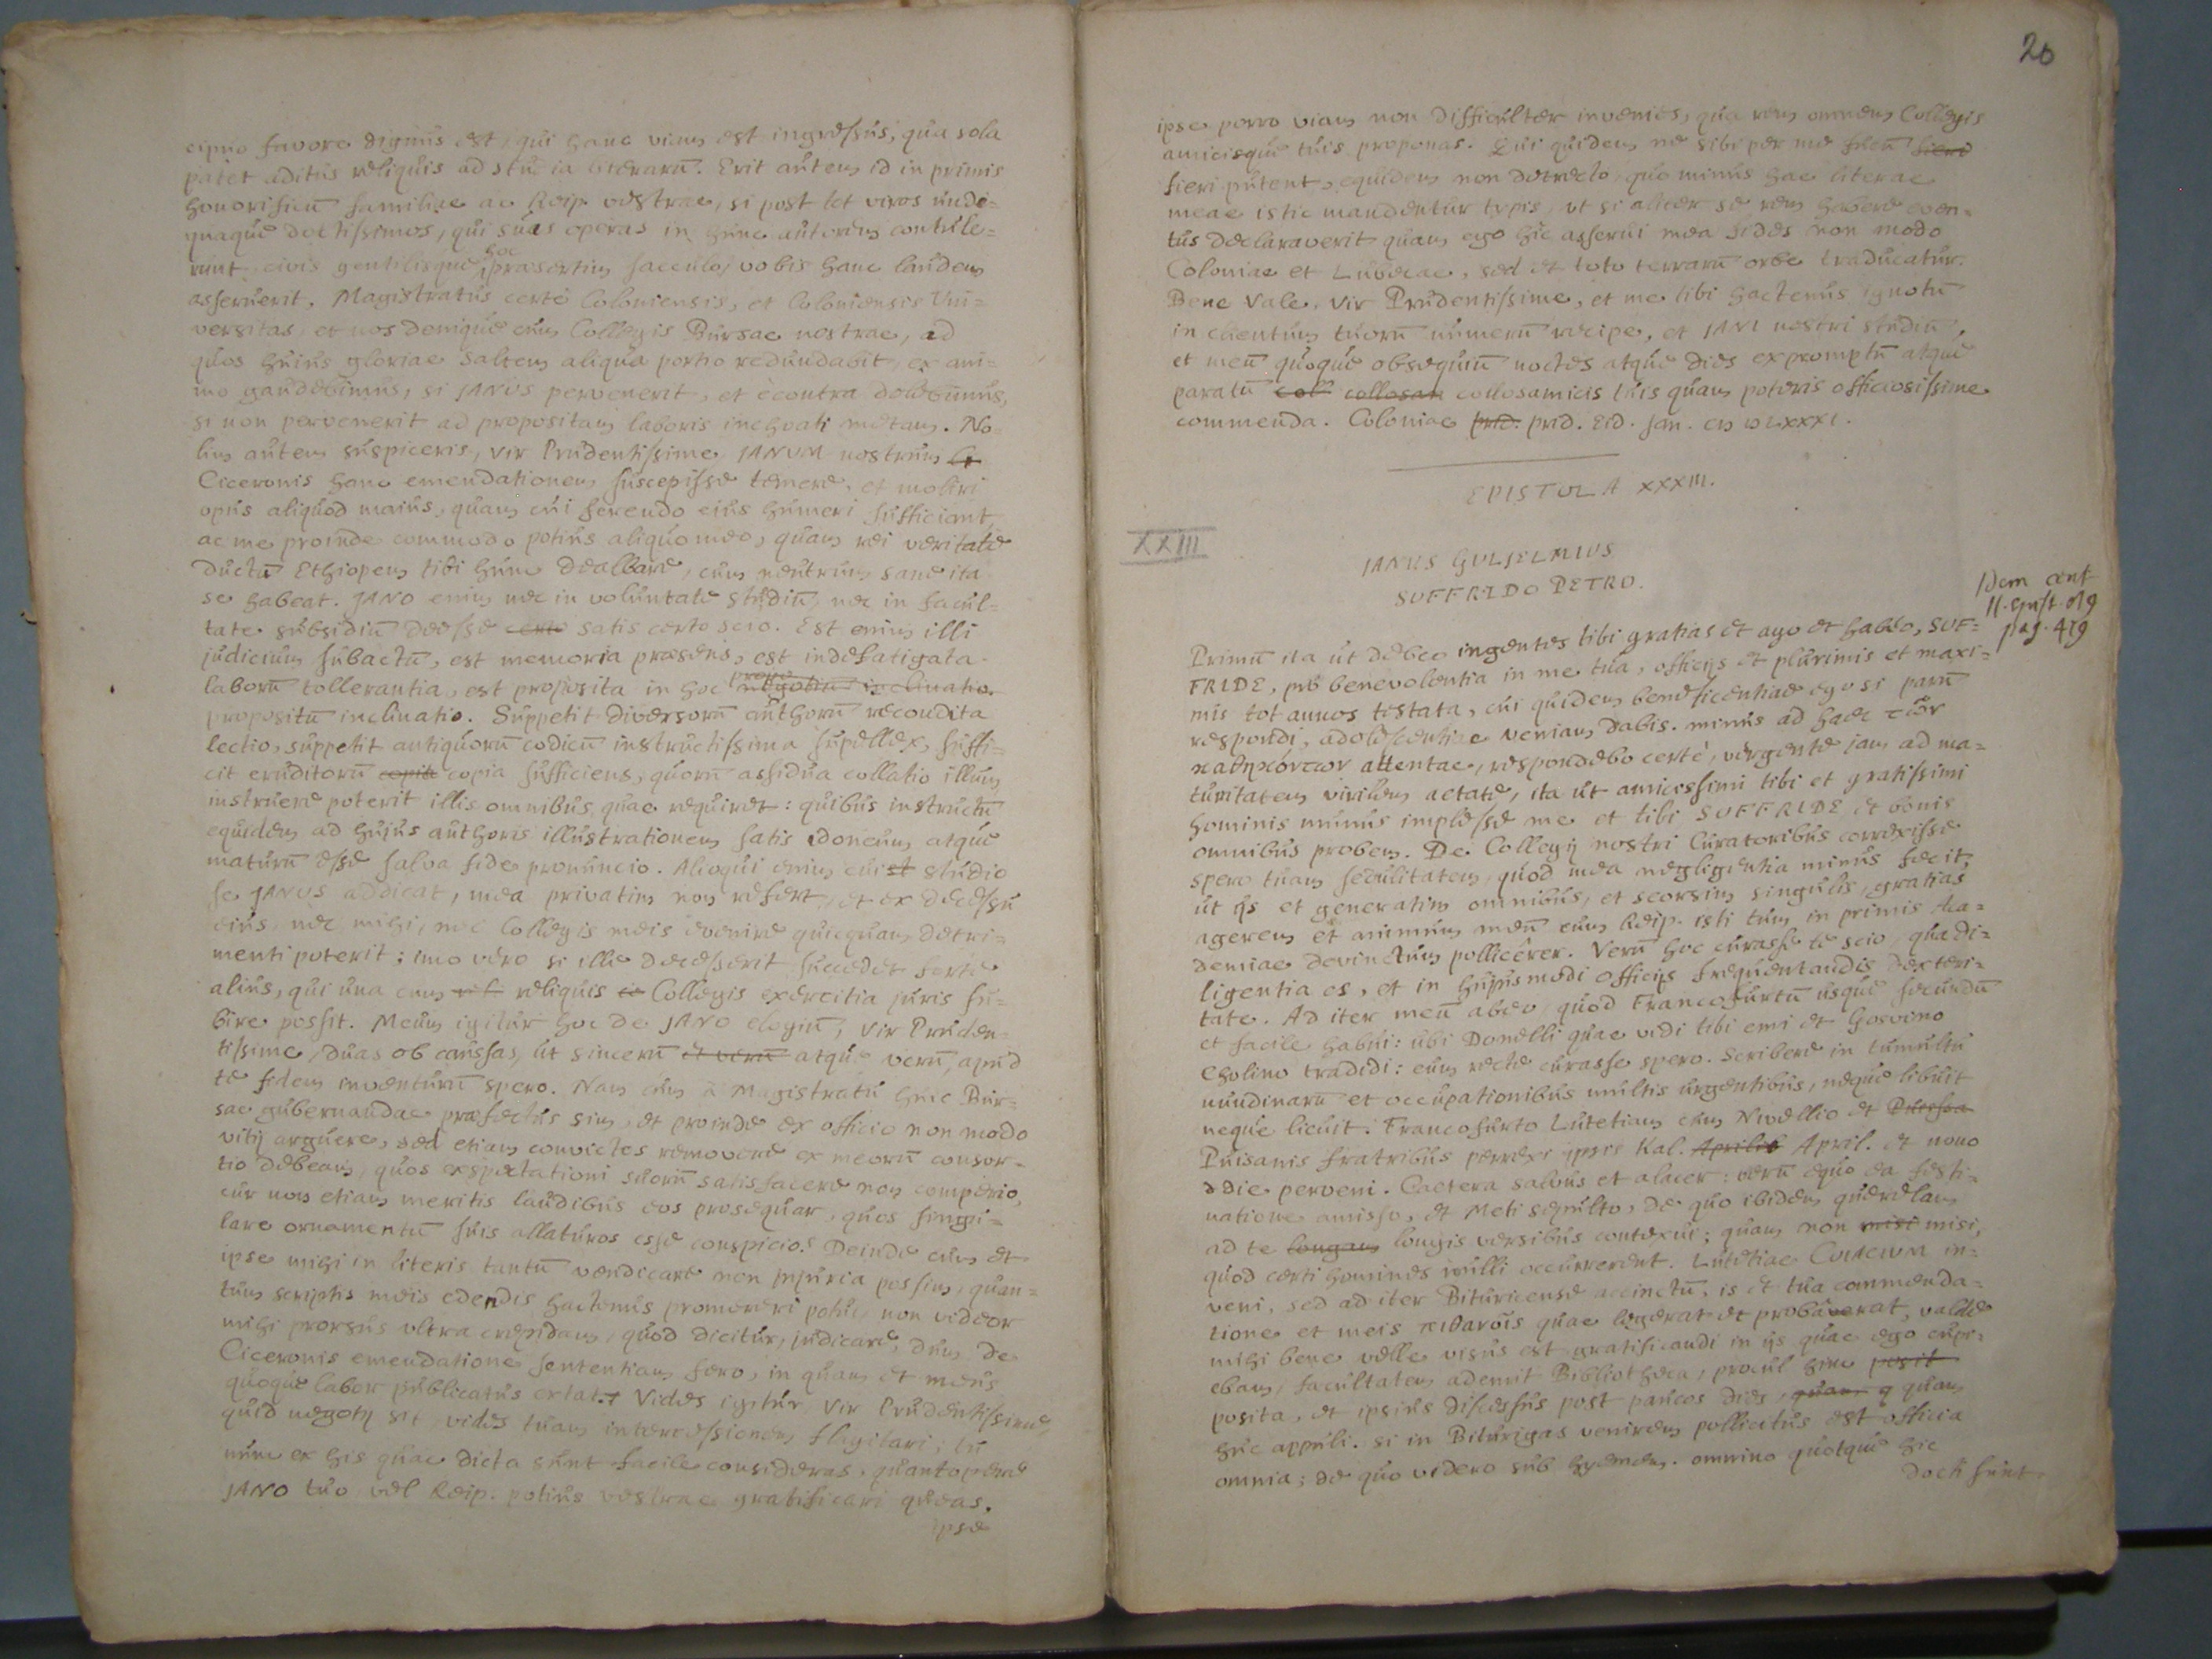 cipuo favore dignus est, qui hanc viam est ingressus, qua sola
patet aditus reliquis ad studia literarū. Erit autem id in primis
honorificū familiae ac Reip. vestrae, si post tot viros unde=
quaque doctissimos, qui suas operas in hunc autorem contule=
runt, civis gentilisque hoc praesertim saeculo, vobis hanc laudem
asseruerit. Magistratus certè Coloniensis, et Coloniensis Uni=
versitas, et nos denique cum Collegis Bursae nostrae, ad
quos huius gloriae saltem aliqua portio redundabit, ex ani=
mo gaudebimus, si JANUS pervenerit, et ècontra dolebimus,
si non pervenerit ad propositam laboris inchoati metam. No=
lim autem suspiceris, vir Prudentissime JANUM nostrum
Ciceronis hanc emendationem suscepisse temere, et moliri
opus aliquod maius, quam cui ferendo eius humeri sufficiant,
ac me proinde commodo potius aliquo meo, quam rei veritate
ductū Ethiopem tibi hunc dealbare, cum neutrum sane ita
se habeat. JANO enim nec in voluntate studiū, nec in facul=
tate subsidiū deesse certo satis certo scio. Est enim illi
judicium subactū, est memoria praesens, est indefatigata
laborū tollerantia, est proposita in hoc negotiū inclinatio prope
propositū inclinatio. Suppetit diversorū authorū recondita
lectio, suppetit antiquorū codicū instructissima supellex, suffi=
cit eruditorū copia copia sufficiens, quorū assidua collatio illum
instruere poterit illis omnibus quae requiret: quibus instructū
equidem ad hujus authoris illustrationem satis idoneum atque
maturū esse salva fide pronuncio. Alioqui enim cui et studio
se JANUS addicat, mea privatim non refert, et ex decessu
eius, nec mihi, nec Collegis meis evenire quicquam detri=
menti poterit; imo vero si ille decesserit succedet forte
alius, qui una cum reliquis Collegis exercitia juris su=
bire possit. Meum igitur hoc de JANO elogiū, Vir Pruden=
tissime, duas ob caussas, ut sincerū et verū atque verū, apud
te fidem inventurū spero. Nam cum à Magistratu huic Bur=
sae gubernandae praefectus sim, et proinde ex officio non modo
vitij arguere, sed etiam convictos removere ex meorū consor=
tio debeam, quos expectationi suorū satisfacere non comperio,
cur non etiam meritis laudibus eos prosequar, quos singu=
lare ornamentū suis allaturos esse conspicio? Deinde cum et
ipse mihi in literis tantū vendicare non injuria possim, quan=
tum scriptis meis edendis hactenus promereri potui, non videor
mihi prorsus ultra crepidam, quod dicitur, judicare, dum de
Ciceronis emendatione sententiam fero, in quam et meus
quoque labor publicatus extat. Vides igitur, Vir Prudentissime,
quid negotij sit, vides tuam intercessionem flagitari; tu
nunc ex his quae dicta sunt facile consideras, quantopere
JANO tuo vel Reip. potius vestrae gratificari queas.
ipse
20
ipse porro viam non difficulter invenies, qua rem omnem Collegis
amicisque tuis proponas. Qui quidem ne sibi per me fucū fieri
fieri putent, equidem non detrecto, quo minus hae literae
meae istic mandentur typis, ut si aliter se rem habere even=
tus declaraverit quam ego hic asserui mea fides non modo
Coloniae et Lubecae, sed et toto terrarū orbe traducatur.
Bene Vale, Vir Prudentissime, et me tibi hactenus ignotū
in clientum tuorū numerū recipe, et JANI nostri studiū,
et meū quoque obsequiū noctes atque dies expromptū atque
paratū coll collosan collosamicis tuis quam poteris officiosissime
commenda. Coloniae prid. prid. Eid. Jan. CIƆ IƆ LXXXI.
EPISTOLA XXXIII.
XXIII
JANUS GULJELMIUS
SUFFRIDO PETRO.
Idem cent
II. epist. 89
pag. 419
Primū ita ut debeo ingentes tibi gratias et ago et habeo, SUF=
FRIDE, pro benevolentia in me tua, officijs et plurimis et maxi=
mis tot annos testata, cui quidem beneficentiae ego si parū
respondi, adolescentiae veniam dabis. minus ad haec τῶν
καθηκόντων attentae, respondebo certè, vergente jam ad ma=
turitatem virilem aetate, ita ut amicissimi tibi et gratissimi
hominis munus implesse me et tibi SUFFRIDE et bonis
omnibus probem. De Collegij nostri Curatoribus correxisse
spero tuam sedulitatem, quod mea negligentia minus fecit,
ut ijs et generatim omnibus, et seorsim singulis, gratias
agerem et animum meū cum Reip. isti tum in primis Aca=
demiae devinctum pollicerer. Verū hoc curasse te scio, qua di=
ligentia es, et in hujusmodi officijs frequentandis dexteri=
tate. Ad iter meū abeo, quod Francofurtū usque secundū
et facile habui: ubi Donelli quae vidi tibi emi et Gosvino
Cholino tradidi: eum recte curasse spero. Scribere in tumultu
nundinarū et occupationibus multis urgentibus, neque libuit
neque licuit. Francofurto Lutetiam cum Nivellio et
Puisanis fratribus perrexi ipsis Kal. Aprilis April. et nono
die perveni. Caetera salvus et alacer: verū equo ea festi=
natione amisso, et Meti sepulto, de quo ibidem querelam
ad te longam longis versibus contexui; quam non misi misi,
quod certi homines nulli occurrerent. Lutetiae CUIACIUM in=
veni, sed ad iter Bituricense accinctū, is et tua commenda=
tione et meis πιθανοῖς quae legerat et probaverat, valde
mihi bene velle visus est gratificandi in ijs quae ego cupi=
ebam, facultatem ademit Bibliotheca, procul hinc posit
posita, et ipsius discessus post paucos dies, quam q quam
huc appuli. si in Biturigas venirem pollicitus est officia
omnia; de quo videro sub hyemem. omnino quotque hic
docti sunt